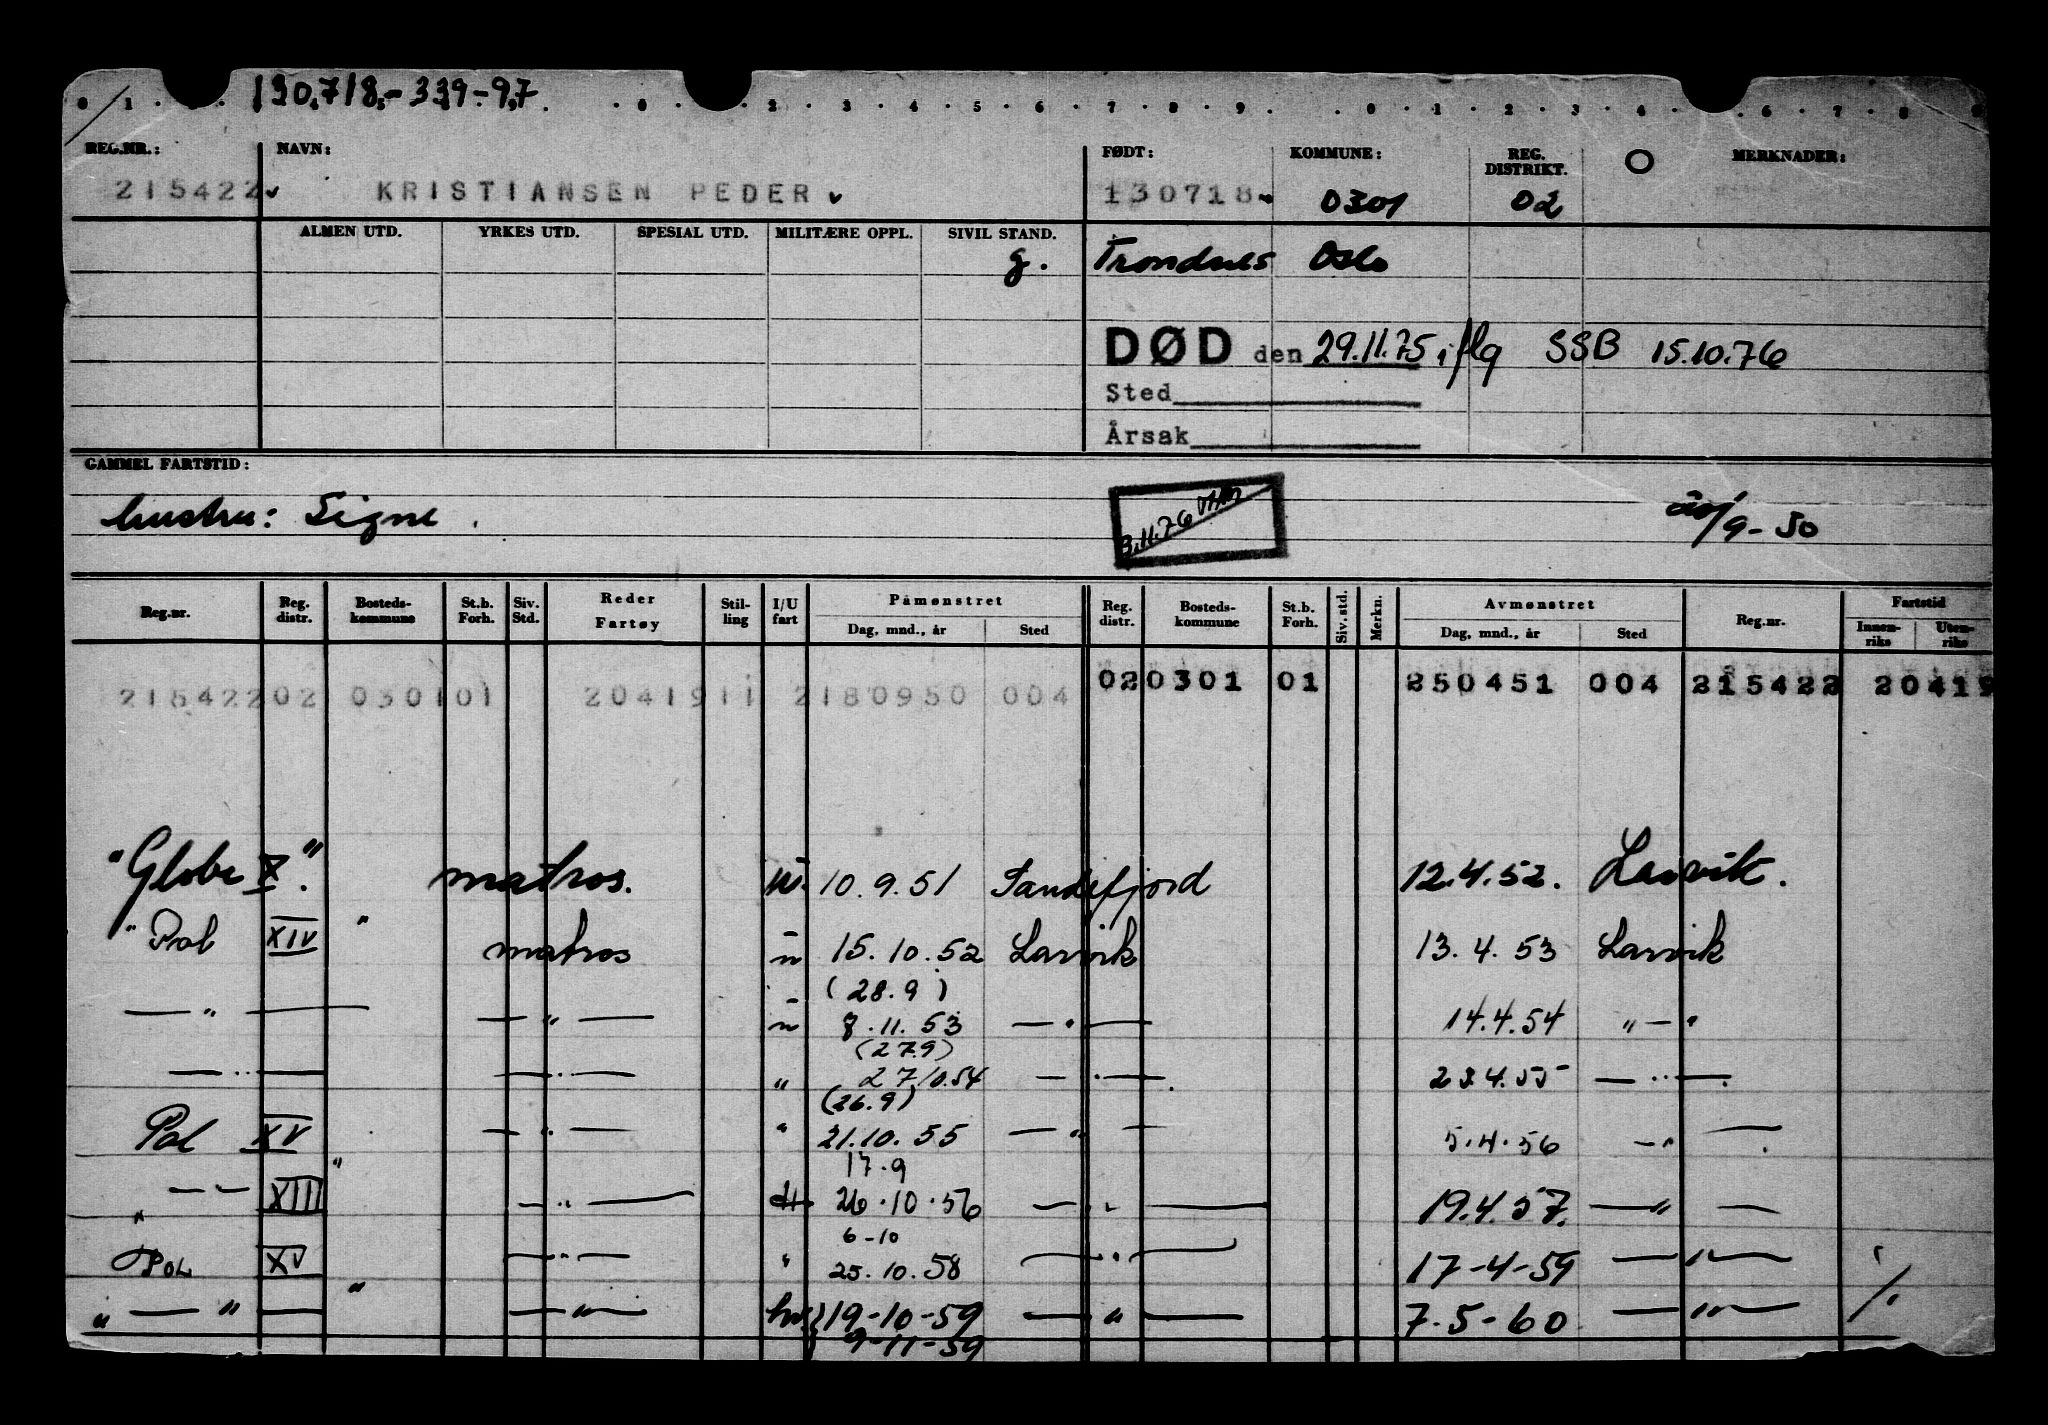 130.718.-339-97.
0 1 . . . 0 . 2 . 3 . 4 . 5 . 6 . 7 . 8 . 9 . . 0 . 1 . 2 . 3 . 4 . 6 . 7 . 8 . 9
REG.NR.: NAVN: FØDT: KOMMUNE: REG. DISTRIKT. O MERKNADER:
215422 KRISTIANSEN PEDER 130718 0301 02
ALMEN UTD. YRKES UTD. SPESIAL UTD. MILITÆRE OPPL. SIVIL STAND.
g. Trondnes Oslo
DØD den 29.11.75 iflg SSB 15.10.76
Sted
Årsak
GAMMEL FARTSTID:
hustru: Signe. 3.11.76 /9-50
Reg.nr. Reg. distr. Bosteds-kommune St.b. Forh. Siv. Std. Reder Fartøy Stil-ling I/U fart Påmønstret Dag, mnd., år Sted Reg. distr. Bosteds-kommune St.b. Forh. Siv. std. Merkn. Avmønstret Dag, mnd., år Sted Reg.nr. Fartstid Innen-riks Uten-riks
215422 02 0301 01 2041911 2180950 004 02 0301 01 250451 004 215422 20419
"Globe X". matros. 10.9.51 Sandefjord 12.4.52. Larvik.
" Pol XIV " matros u 15.10.52 Larvik 13.4.53 Larvik
(28.9)
— " — — " — u 8.11.53 — " — 14.4.54 " — "
(27.9)
— " — — " — " 27/10.54 — " — 23.4.55 — " —
(26.9)
Pol XV — " — " 21.10.55 — " — 5.4.56 — " —
17.9
— " — XIII " — " — 26.10.56 — " — 19.4.57. — " —
6-10
" Pol XV — " — " 25.10.58 — " — 17-4-59 — " —
" — " — " — " — hv. 19-10-59 — " — 7.5-60 — " —
9-11-59